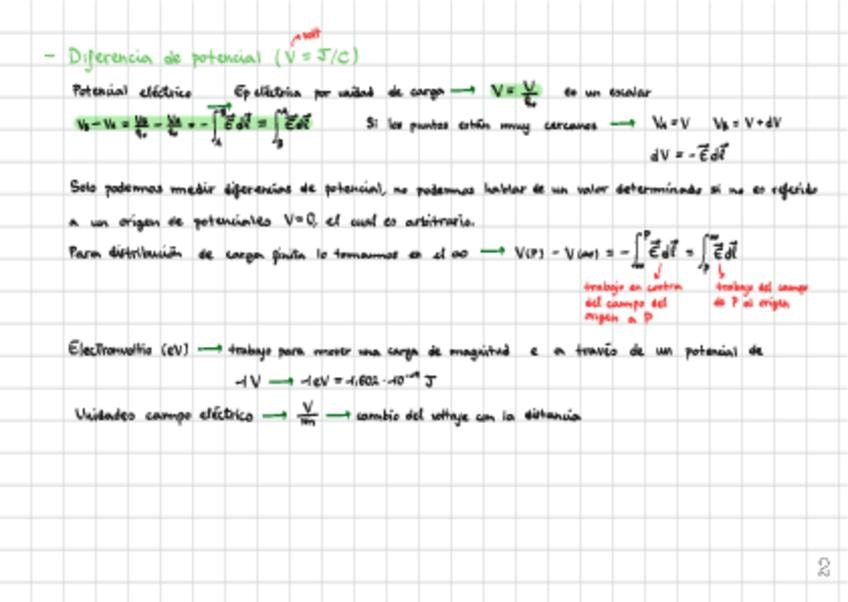 volt
- Diferencia de potencial (V = J/C)
Potencial eléctrico Ep eléctrica por unidad de carga → V = U/q₀ es un escalar
V_B - V_A = U_B/q₀ - U_A/q₀ = -∫_A^B E⃗ dl⃗ = ∫_B^A E⃗ dl⃗ Si los puntos están muy cercanos → V_A = V V_B = V + dV
dV = - E⃗ dl⃗
Solo podemos medir diferencias de potencial, no podemos hablar de un valor determinado si no es referido
a un origen de potenciales V=0, el cual es arbitrario.
Para distribución de carga finita lo tomamos en el ∞ → V(P) - V(∞) = -∫_∞^P E⃗ dl⃗ = ∫_P^∞ E⃗ dl⃗
trabajo en contra del campo del origen a P
trabajo del campo de P al origen
Electronvoltio (eV) → trabajo para mover una carga de magnitud e a través de un potencial de
1V → 1eV = 1,602·10⁻¹⁹ J
Unidades campo eléctrico → V/m → cambio del voltaje con la distancia
2